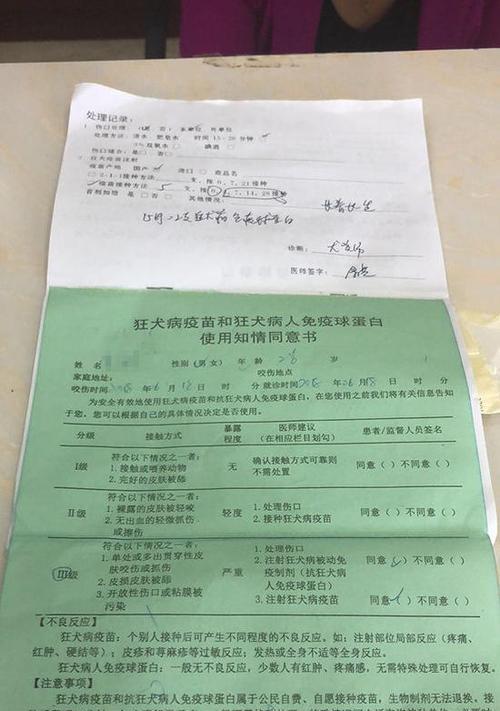 处理记录:
处理方法: 清水 肥皂水 时间 15-20分钟
3%双氧水 □ 碘酒 □
伤口缝合: 是□ 否□
2 狂犬疫苗注射
疫苗产地 国产 进口 □ 商品名
□ 2-1-1接种方法 支, 按 0, 7, 21接种
疫苗接种方法 5 支, 按 0 3, 7, 14, 28接种
首剂加倍 是 □ 否□ 其他情况:
长春长生
诊断:
医师签字:
狂犬病疫苗和狂犬病人免疫球蛋白
使用知情同意书
姓名 性别 (男 女) 年龄 26 岁
家庭地址: 咬伤地点
咬伤时间 2018 年 6 月 18 日 时 分 就诊时间 2018 年 06 月 18 日 时 分
为安全有效地使用狂犬病疫苗和抗狂犬病人免疫球蛋白, 在您使用之前我们将有关信息告知
于您。您可以根据自己的具体情况决定是否使用。
分级 接触方式 暴露程度 医师建议 (在相应栏目划勾) 患者/监督人员签名
符合以下情况之一者:
Ⅰ级 1. 接触或喂养动物 无 确认接触方式可靠则 同意 ( ) 不同意 ( )
2. 完好的皮肤被舔 不需处置
符合以下情况之一者:
Ⅱ级 1. 裸露的皮肤被轻咬 轻度 1. 处理伤口 同意 ( ) 不同意 ( )
2. 无出血的轻微抓伤 2. 接种狂犬病疫苗
或擦伤
符合以下情况之一者: 1. 处理伤口
1. 单处或多出贯穿性皮 2. 注射狂犬病被动免 同意 ( ) 不同意 ( )
肤咬伤或抓伤 疫制剂 (抗狂犬病
Ⅲ级 2. 皮损皮肤被舔 严重 人免疫球蛋白)
3. 开放性伤口或粘膜被 3. 注射狂犬病疫苗 同意 ( ) 不同意 ( )
污染
【不良反应】
狂犬病疫苗: 个别人接种后可产生不同程度的不良反应。如: 注射部位局部反应 (疼痛、
红肿、硬结等); 皮疹和荨麻疹等过敏反应; 发热或全身不适等全身反应。
狂犬病人免疫球蛋白: 一般无不良反应, 少数人有红肿、疼痛感, 无需特殊处理可自行恢复。
【注意事项】
狂犬病疫苗和抗狂犬病人免疫球蛋白属于公民自费、自愿接种疫苗, 生物制剂无法退换。接